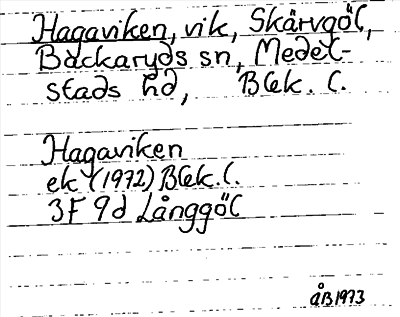 Hagaviken, vik, Skärvgöl,
Backaryds sn, Medel-
stads hd, Blek. l.
Hagaviken
ek (1972) Blek. l.
3F 9d Långgöl
ÅB 1973